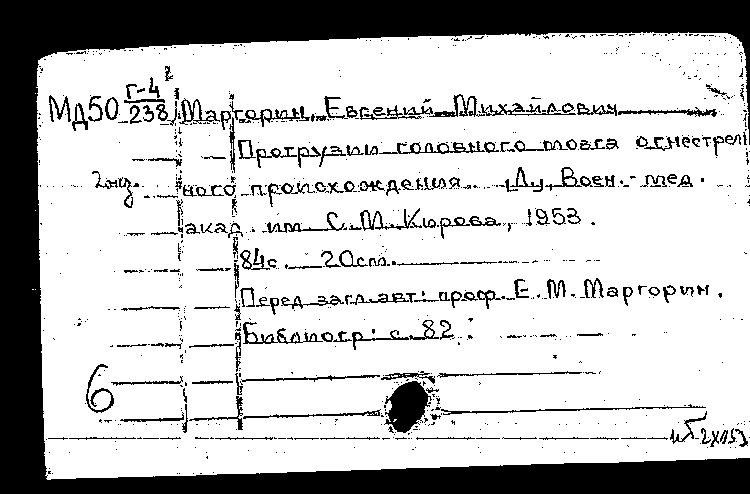 Мд50 Г-4/238 Маргорин, Евгений Михайлович
Протрузии головного мозга огнестрель
2 экз. ного происхождения. Л., Воен.-мед.
акад. им С.М.Кирова, 1953.
84с. 20см.
Перед загл.авт: проф. Е.М.Маргорин.
Библиогр: с.82.
6